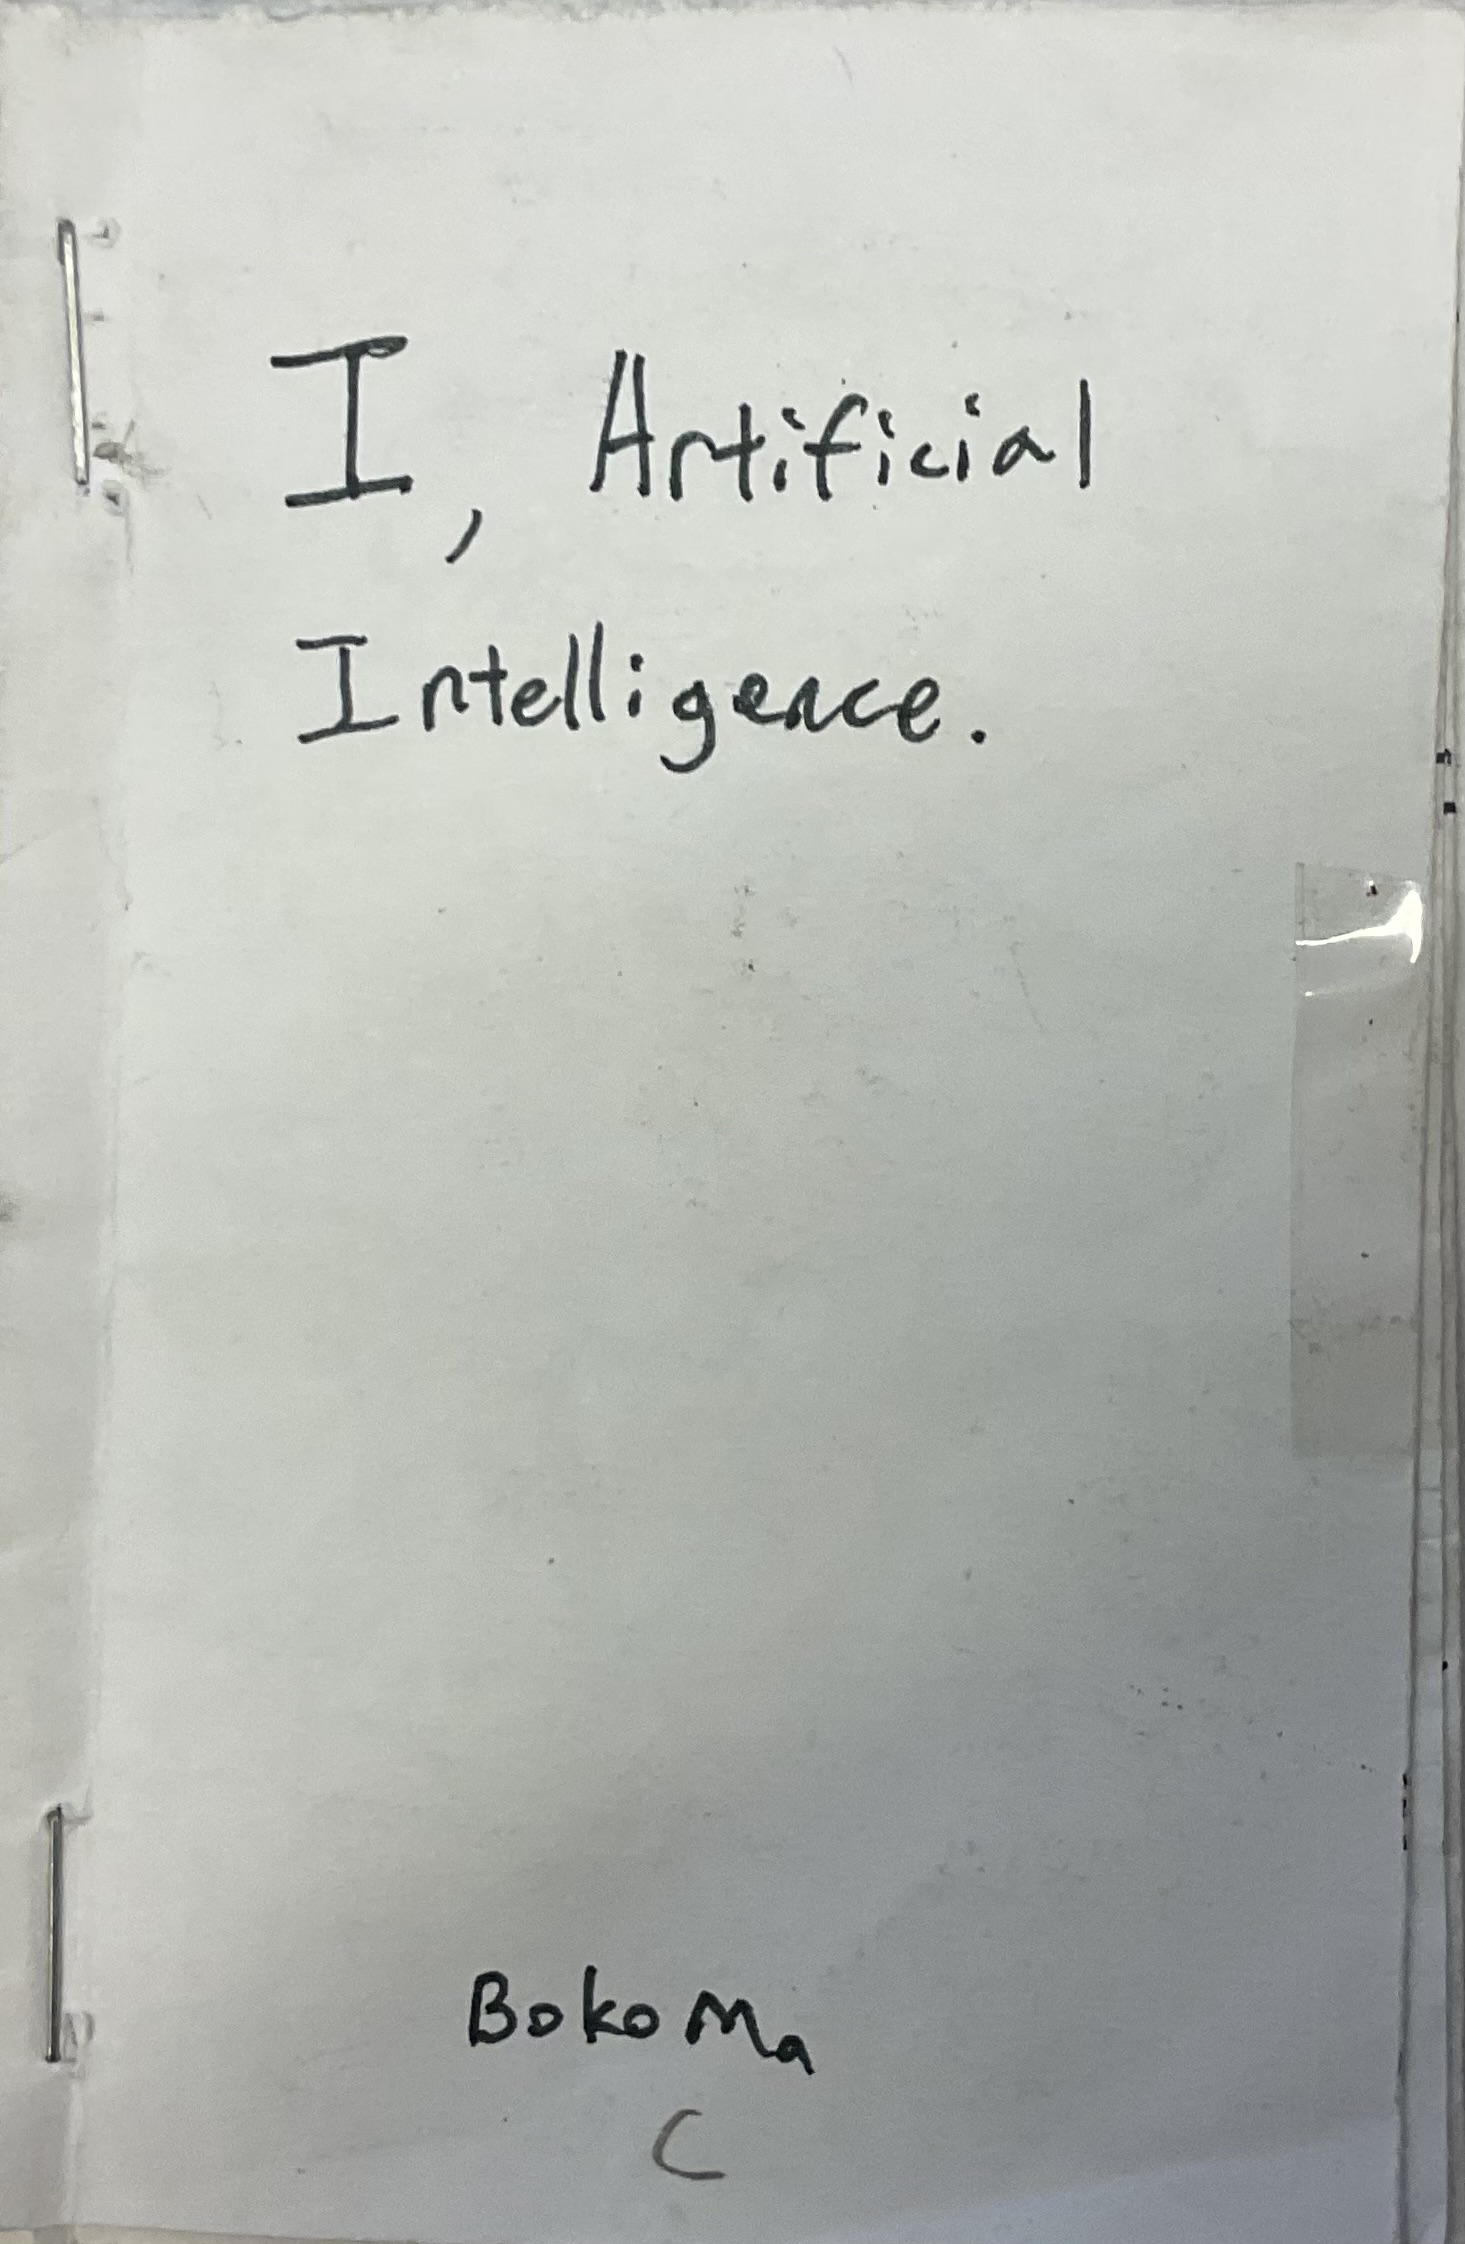 I, Artificial
Intelligence.
Boko Ma
C